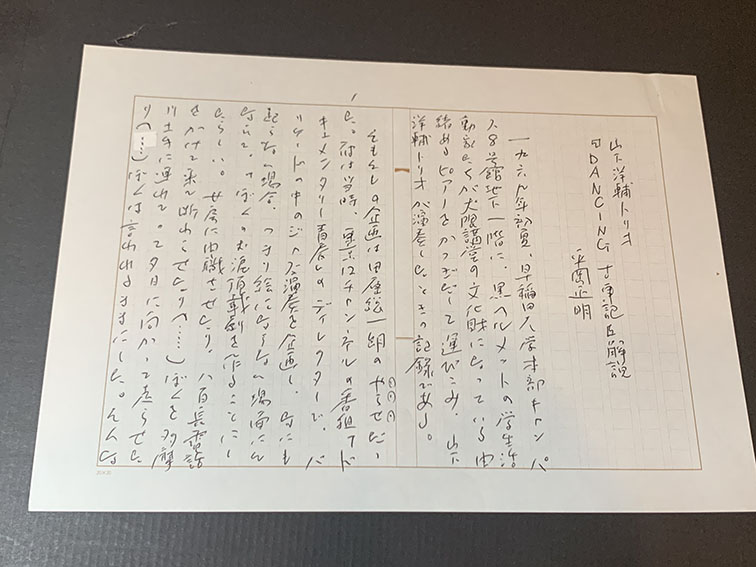 山下洋輔トリオ
『DANCING古事記』解説
平岡正明
一九六九年初夏、早稲田大学本部キャンパ
ス8号館地下一階に、黒ヘルメットの学生活
動家たちが大隈講堂の文化財になっている由
緒あるピアノをかつぎだして運びこみ、山下
洋輔トリオが演奏したときの記録である。
そもそもこの企画は田原総一朗のやらせだっ
た。田原は当時、東京12チャンネルの番組「ド
キュメンタリー青春」のディレクターで、バ
リケードの中のジャズ演奏を企画し、なにも
起らない場合、つまり絵にならない場面にそ
なえて、「ぼくのお涙頂戴劇を作ることにし
たらしい。女房に内職させたり、八百長電話
をかけて来て断わらせたり(……)ぼくを多摩
川土手に連れてって夕日に向かって走らせた
り(……)ぼくは言われるままにした。そんな